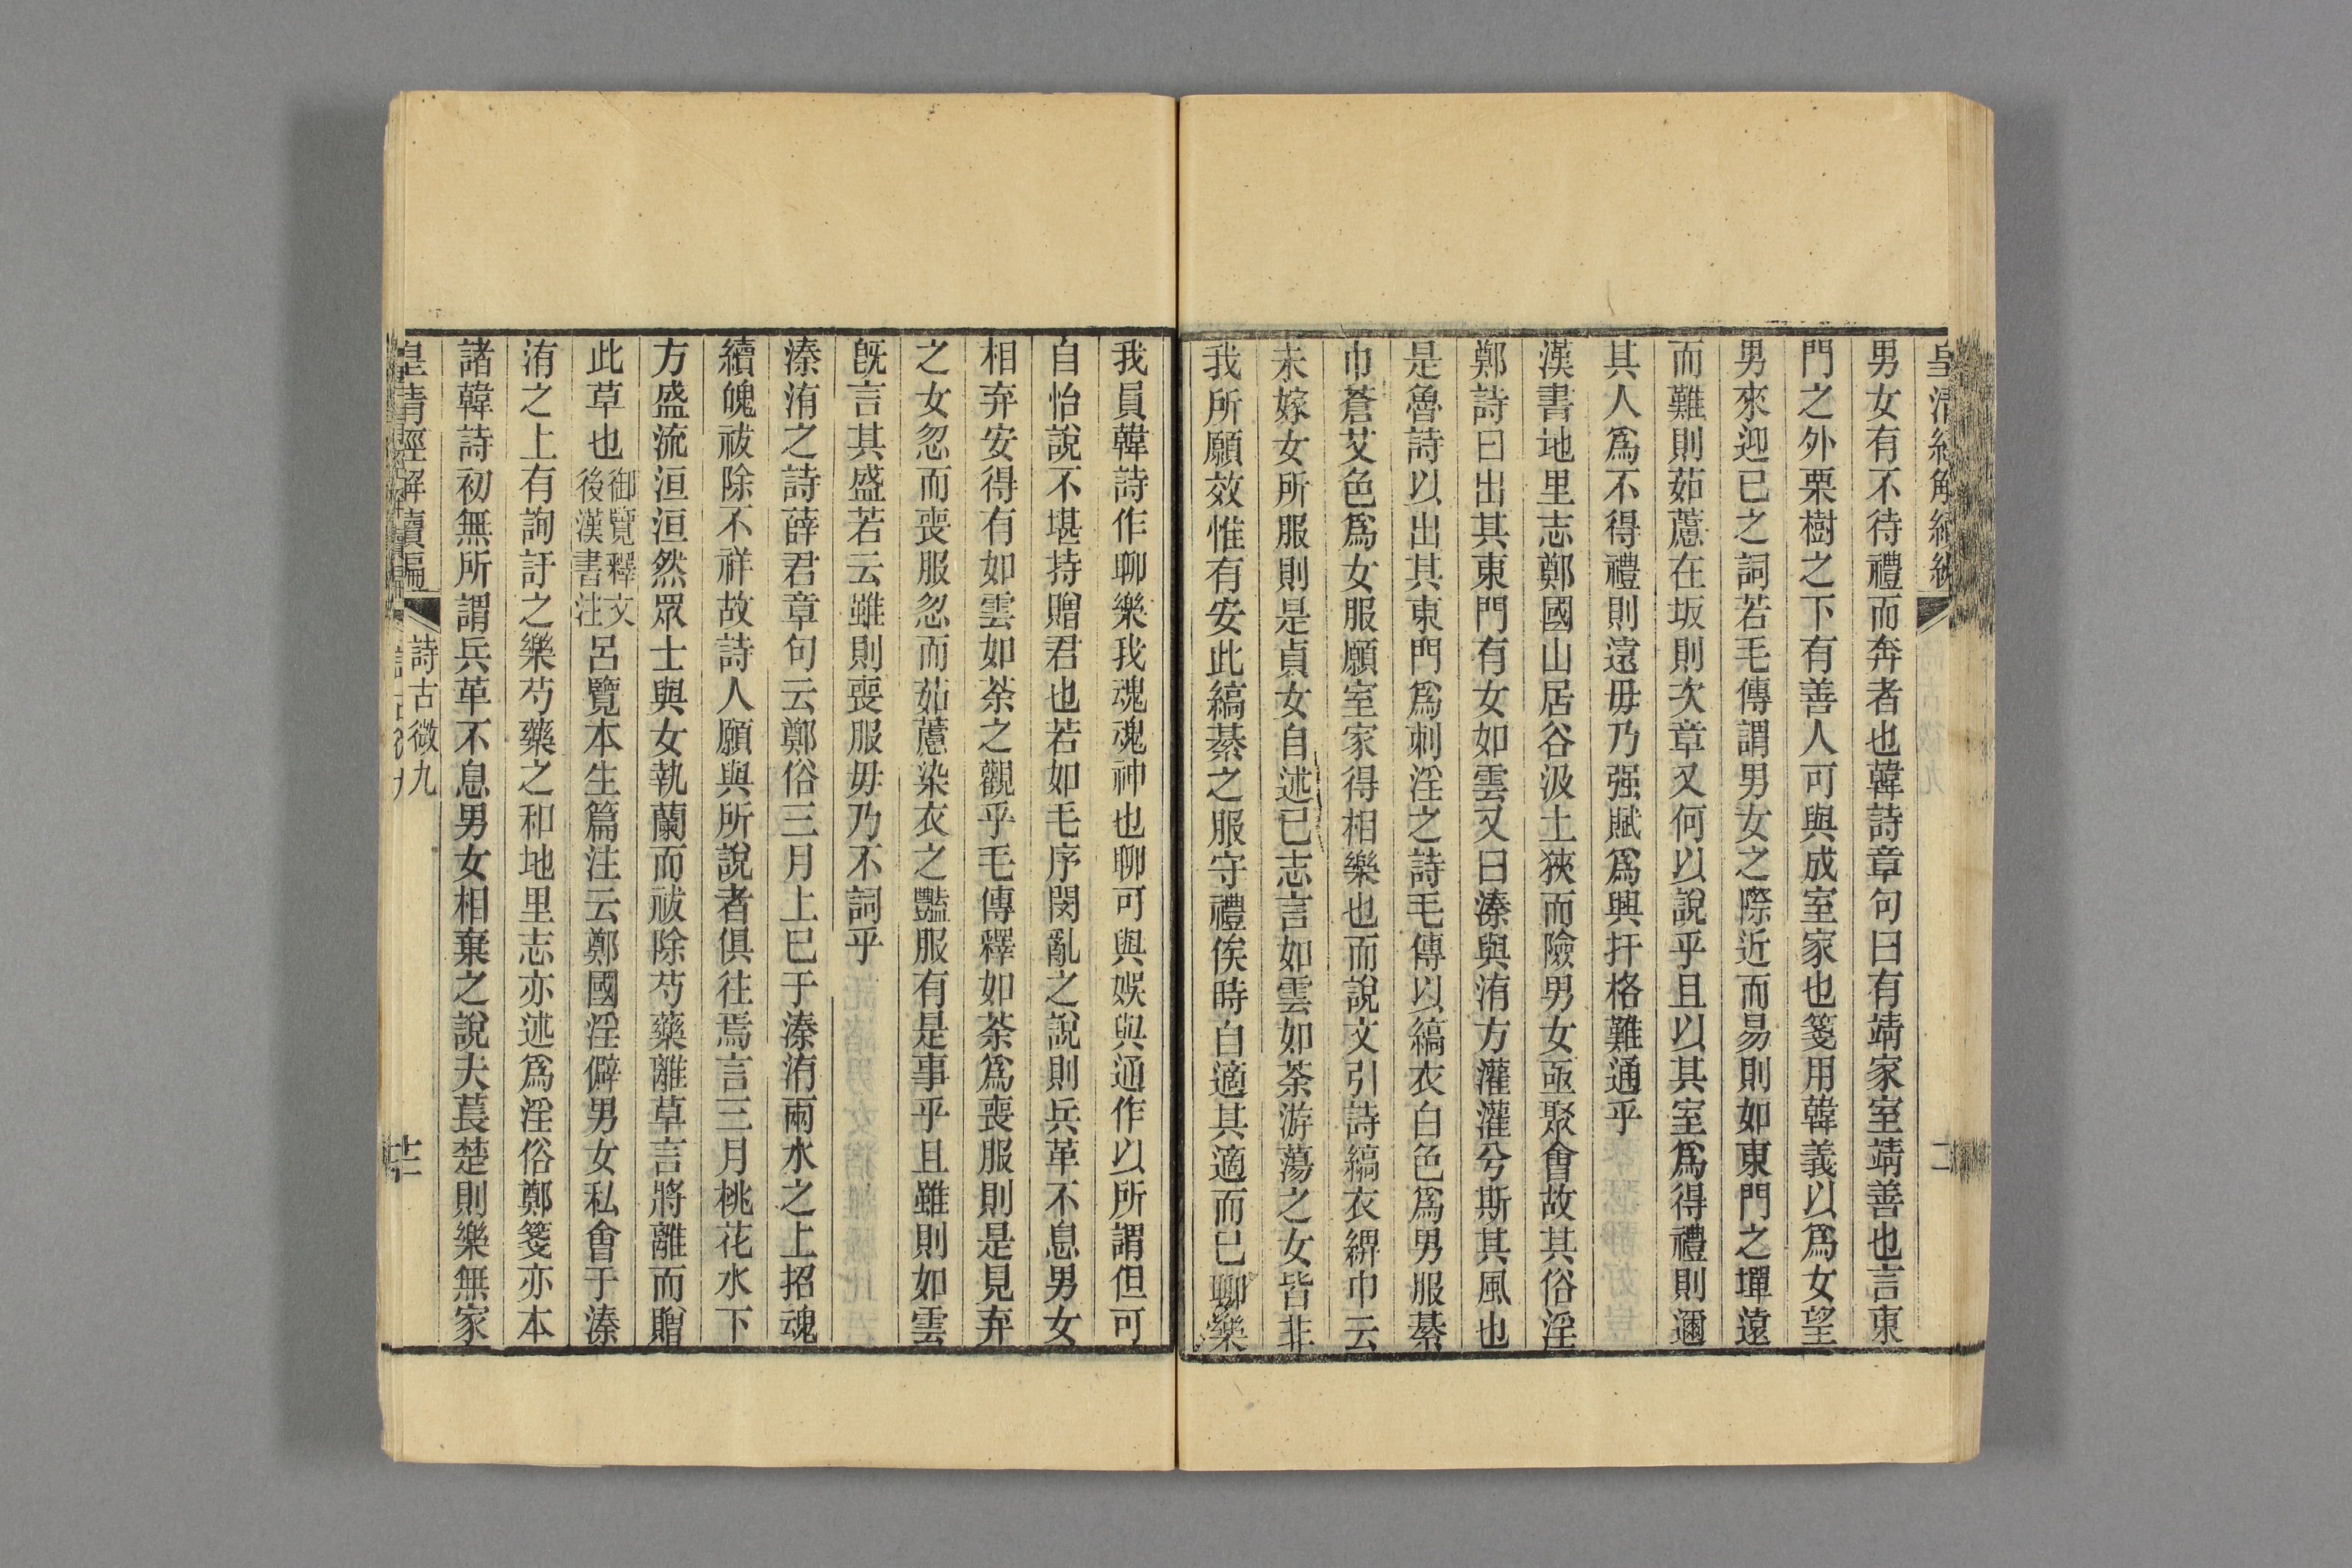 男女有不待禮而奔者也韓詩章句曰有靖家室靖善也言東
門之外栗樹之下有善人可與成室家也箋用韓義以爲女望
男來迎已之詞若毛傳謂男女之際近而易則如東門之墠遠
而難則茹藘在坂則次章又何以說乎且以其室爲得禮則邇
其人爲不得禮則遠毋乃强賦爲興扞格難通乎
漢書地里志鄭國山居谷汲土狹而險男女亟聚會故其俗淫
鄭詩曰出其東門有女如雲又曰溱與洧方灌灌兮斯其風也
是魯詩以出其東門爲刺淫之詩毛傳以縞衣白色爲男服綦
巾蒼艾色爲女服願室家得相樂也而說文引詩縞衣綥巾云
未嫁女所服則是貞女自述已志言如雲如荼游蕩之女皆非
我所願效惟有安此縞綦之服守禮俟時自適其適而已聊樂
我員韓詩作聊樂我魂魂神也聊可與娛與通作以所謂但可
自怡說不堪持贈君也若如毛序閔亂之說則兵革不息男女
相弃安得有如雲如荼之觀乎毛傳釋如荼爲喪服則是見弃
之女忽而喪服忽而茹藘染衣之豔服有是事乎且雖則如雲
旣言其盛若云雖則喪服毋乃不詞乎
溱洧之詩薛君章句云鄭俗三月上巳于溱洧兩水之上招魂
續魄祓除不祥故詩人願與所說者俱往焉言三月桃花水下
方盛流洹洹然眾士與女執蘭而祓除芍藥離草言將離而贈
此草也御覽釋文後漢書注呂覽本生篇注云鄭國淫僻男女私會于溱
洧之上有詢訏之樂芍藥之和地里志亦述爲淫俗鄭箋亦本
諸韓詩初無所謂兵革不息男女相棄之說夫萇楚則樂無家
皇清經解續編 詩古微九